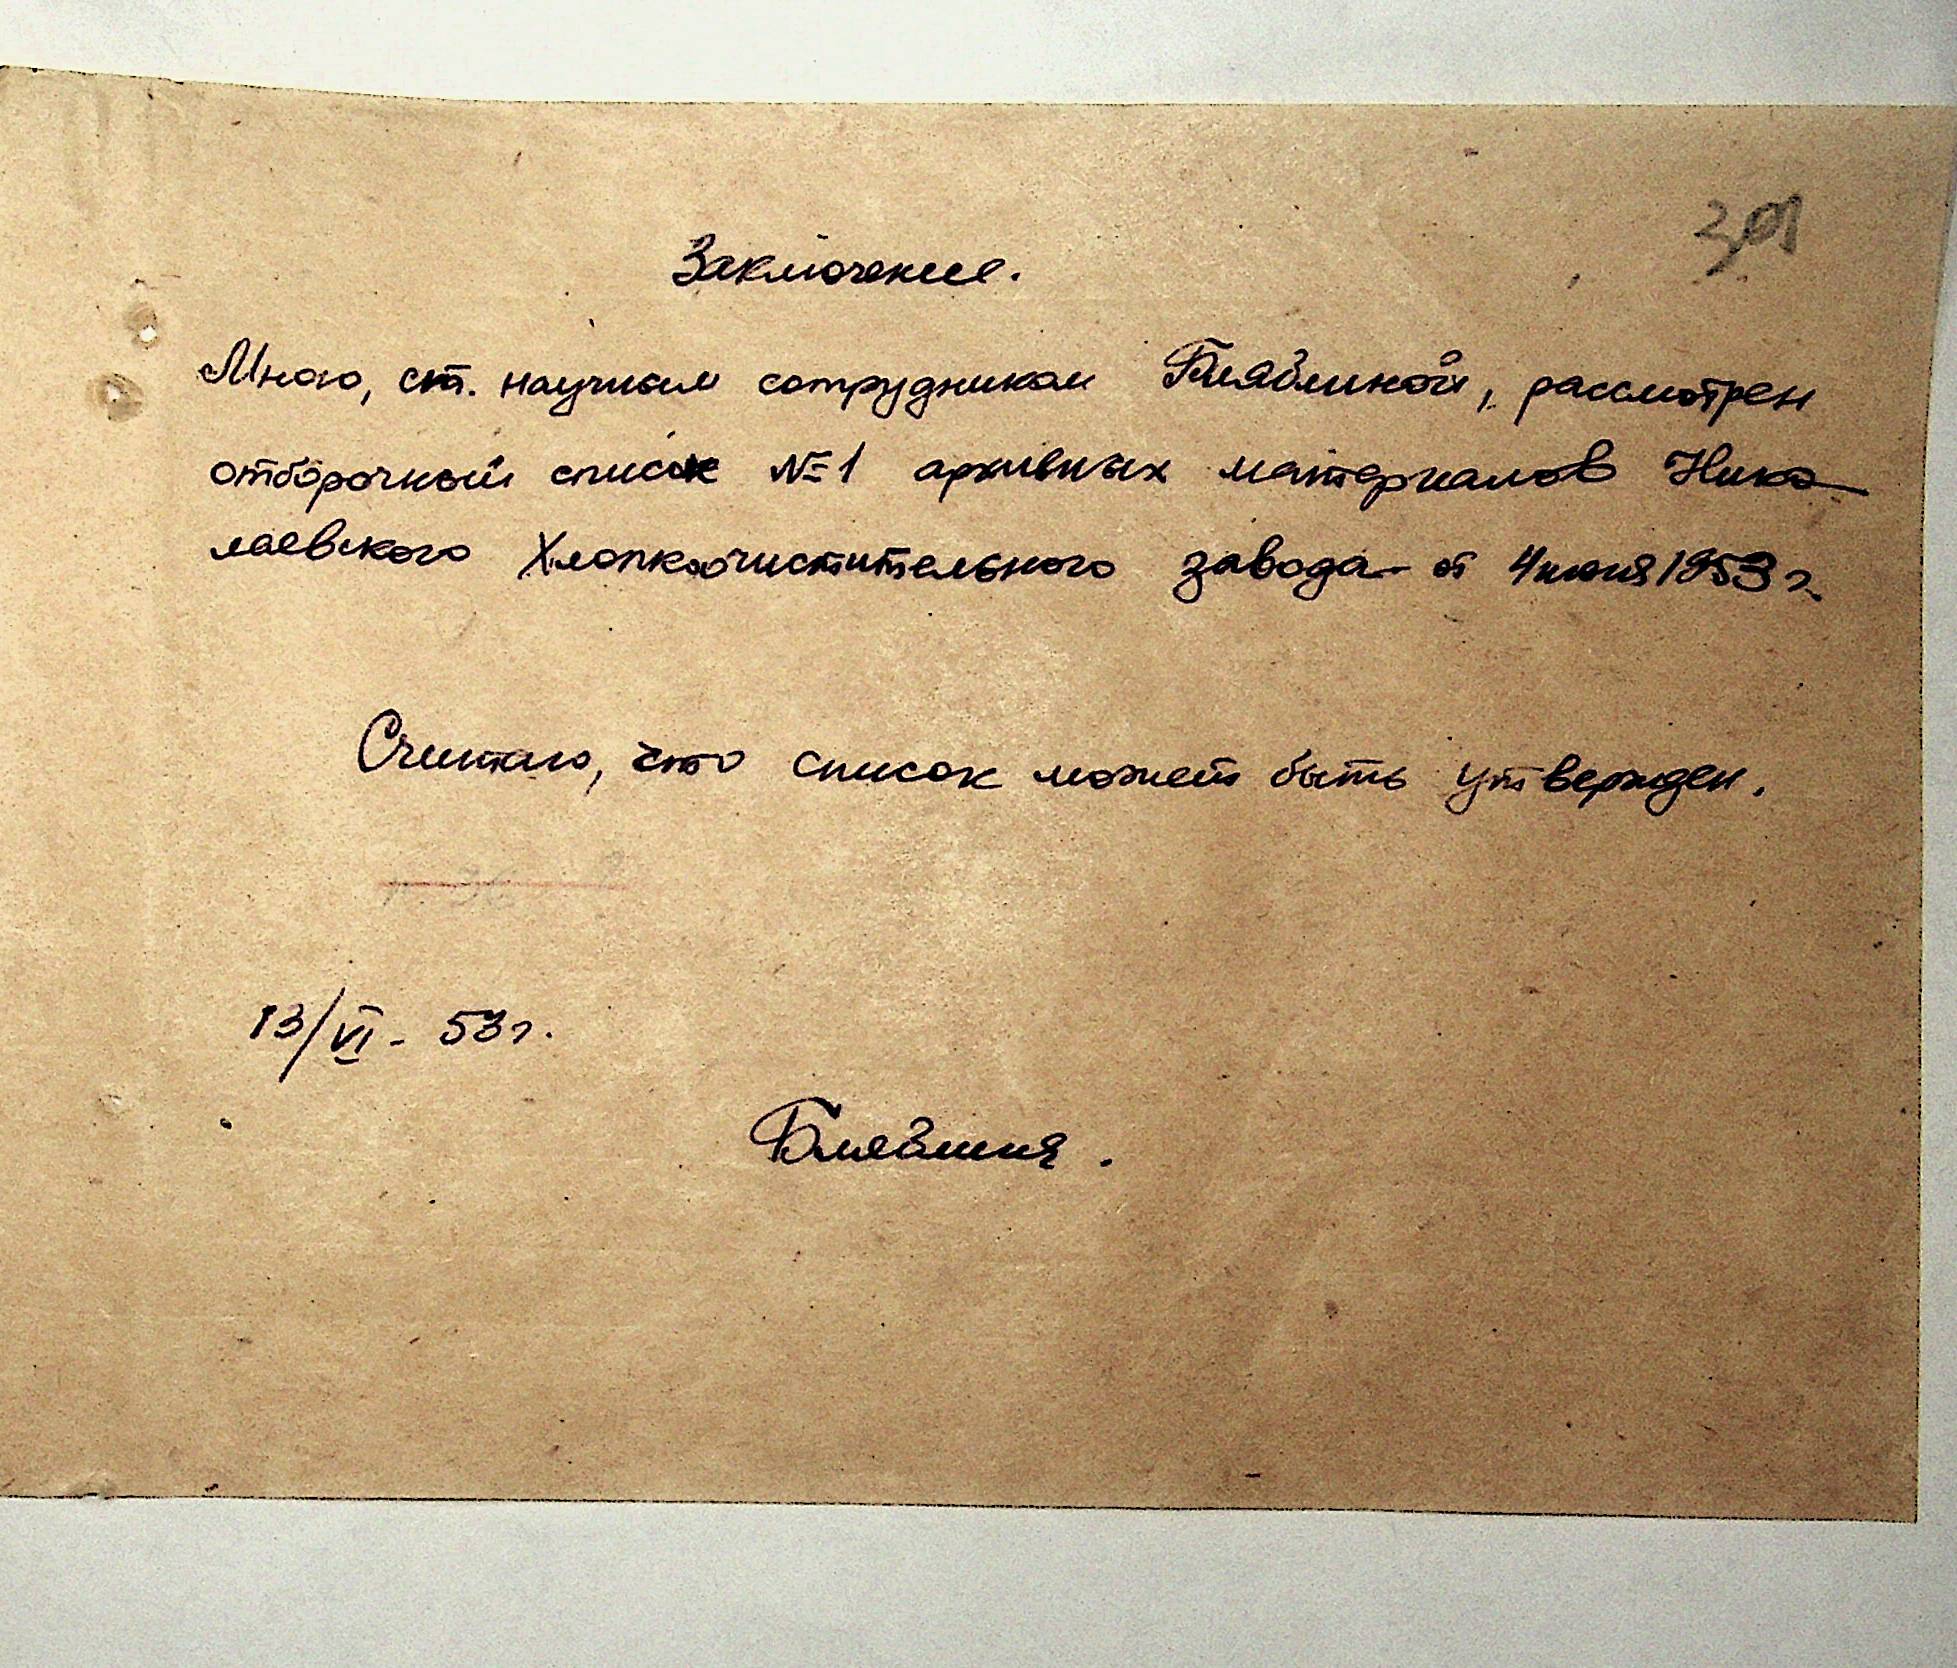 Заключение.
Мною, ст. научным сотрудником Блябликой, рассмотрен
отборочный список №1 архивных материалов Нико-
лаевского Хлопкоочистительного завода от 4 июня 1953 г.
Считаю, что список может быть утвержден.
13/VI - 53 г.